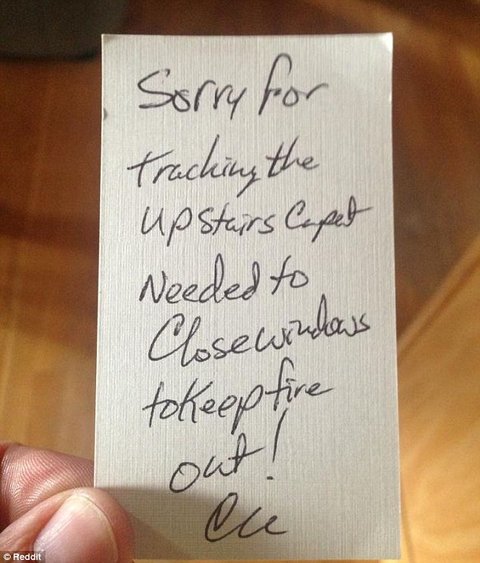 Sorry for
tracking the
upstairs Capet
Needed to
Close windows
to Keep fire
out!
© Reddit